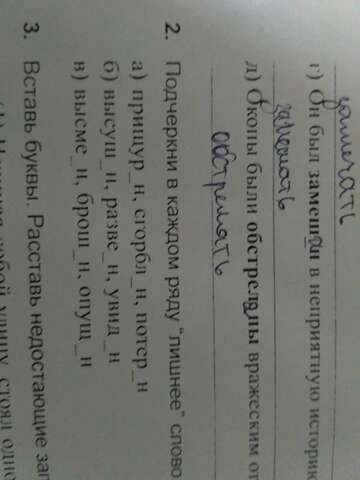 замечать
г) Он был замешан в неприятную историю
замешать
д) Окопы были обстреляны вражеским ог
обстрелять
2. Подчеркни в каждом ряду "лишнее" слово
а) прищур_н, сгорбл_н, потер_н
б) высуш_н, разве_н, увид_н
в) высме_н, брош_н, опущ_н
3. Вставь буквы. Расставь недостающие зап
собой улицу стоял одно